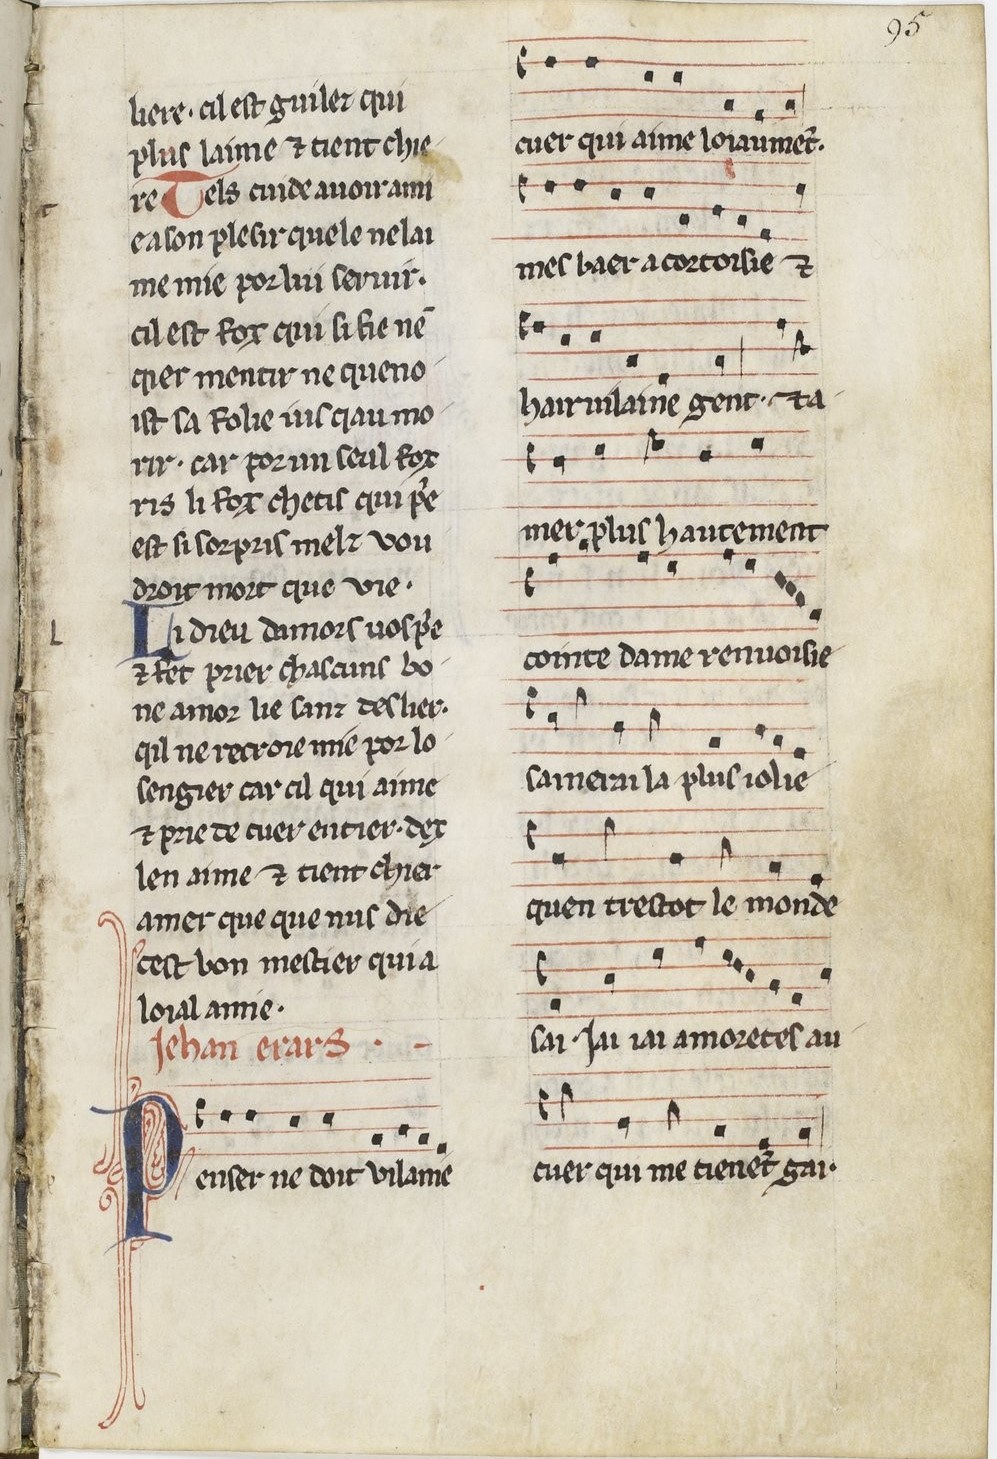 95
liere · cil est guilez qui
plus laime ⁊ tient chie
re Tels cuide auoir ami
e a son plesir quele ne lai
me mie por lui seruir ·
cil est fox qui si fie nē
qier mentir ne queno
ist sa folie iusqau mo
rir · car por un seul fox
ris li fox chetis qui p̾e
est si sorpris melz vou
droit mort que vie ·
Li dieu damors uos p̾e
⁊ fet prier chascuns bo
ne amor lie sanz deslier ·
qil ne recroie mie por lo
sengier car cil qui aime
⁊ prie de cuer entier · dex
len aime ⁊ tient chier
amer que que nus die
cest bon mestier qui a
loial amie ·
Jehan erars ·
Penser ne doit vilanie
cuer qui aime loiaumēt ·
mes baer a cortoisie ⁊
hair uilaine gent · ⁊ a
mer plus hautement
cointe dame renuoisie
samerai la plus iolie
quen trestot le monde
sai · Jai iai amoretes au
cuer qui me tienēt gai ·
L